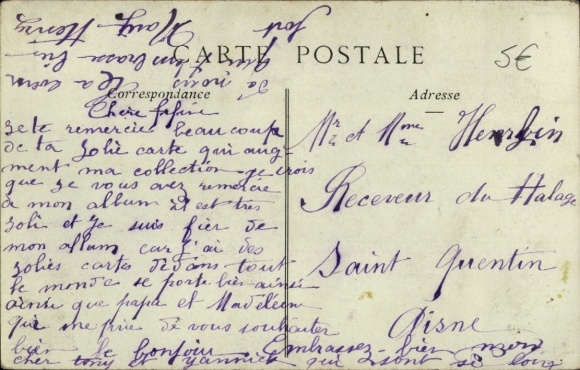 CARTE POSTALE
5€
Correspondance
Adresse
Chère fifine
Je te remercie beaucoup
de ta Jolie carte qui aug-
ment ma collection je crois
que je vous avez remercie
de mon album il est très
Joli et Je suis fier de
mon album car j'ai des
Jolies cartes dedans tout
le monde se porte bien ainsi
ainsi que papa et Madeleine
qui me prie de vous souhaiter
bien le bonjour. Embrassez bien mon
cher tony et yannick qui sont si loin
de nous
embrasse bien
fort
Mr et Mme
Receveur du Halage
Saint Quentin
Aisne